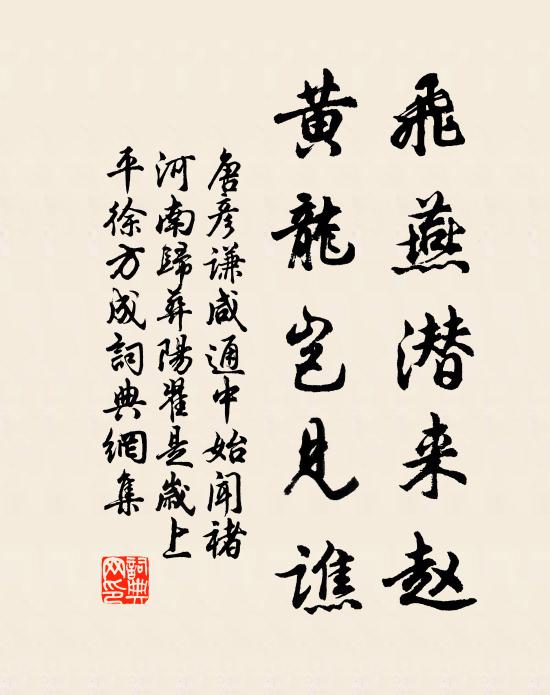 飛燕潜来赵
黃龍岂見譙
唐彦謙咸通中始聞褚
河南歸葬陽翟是歲上
平徐方成詞典網集
詞典网印